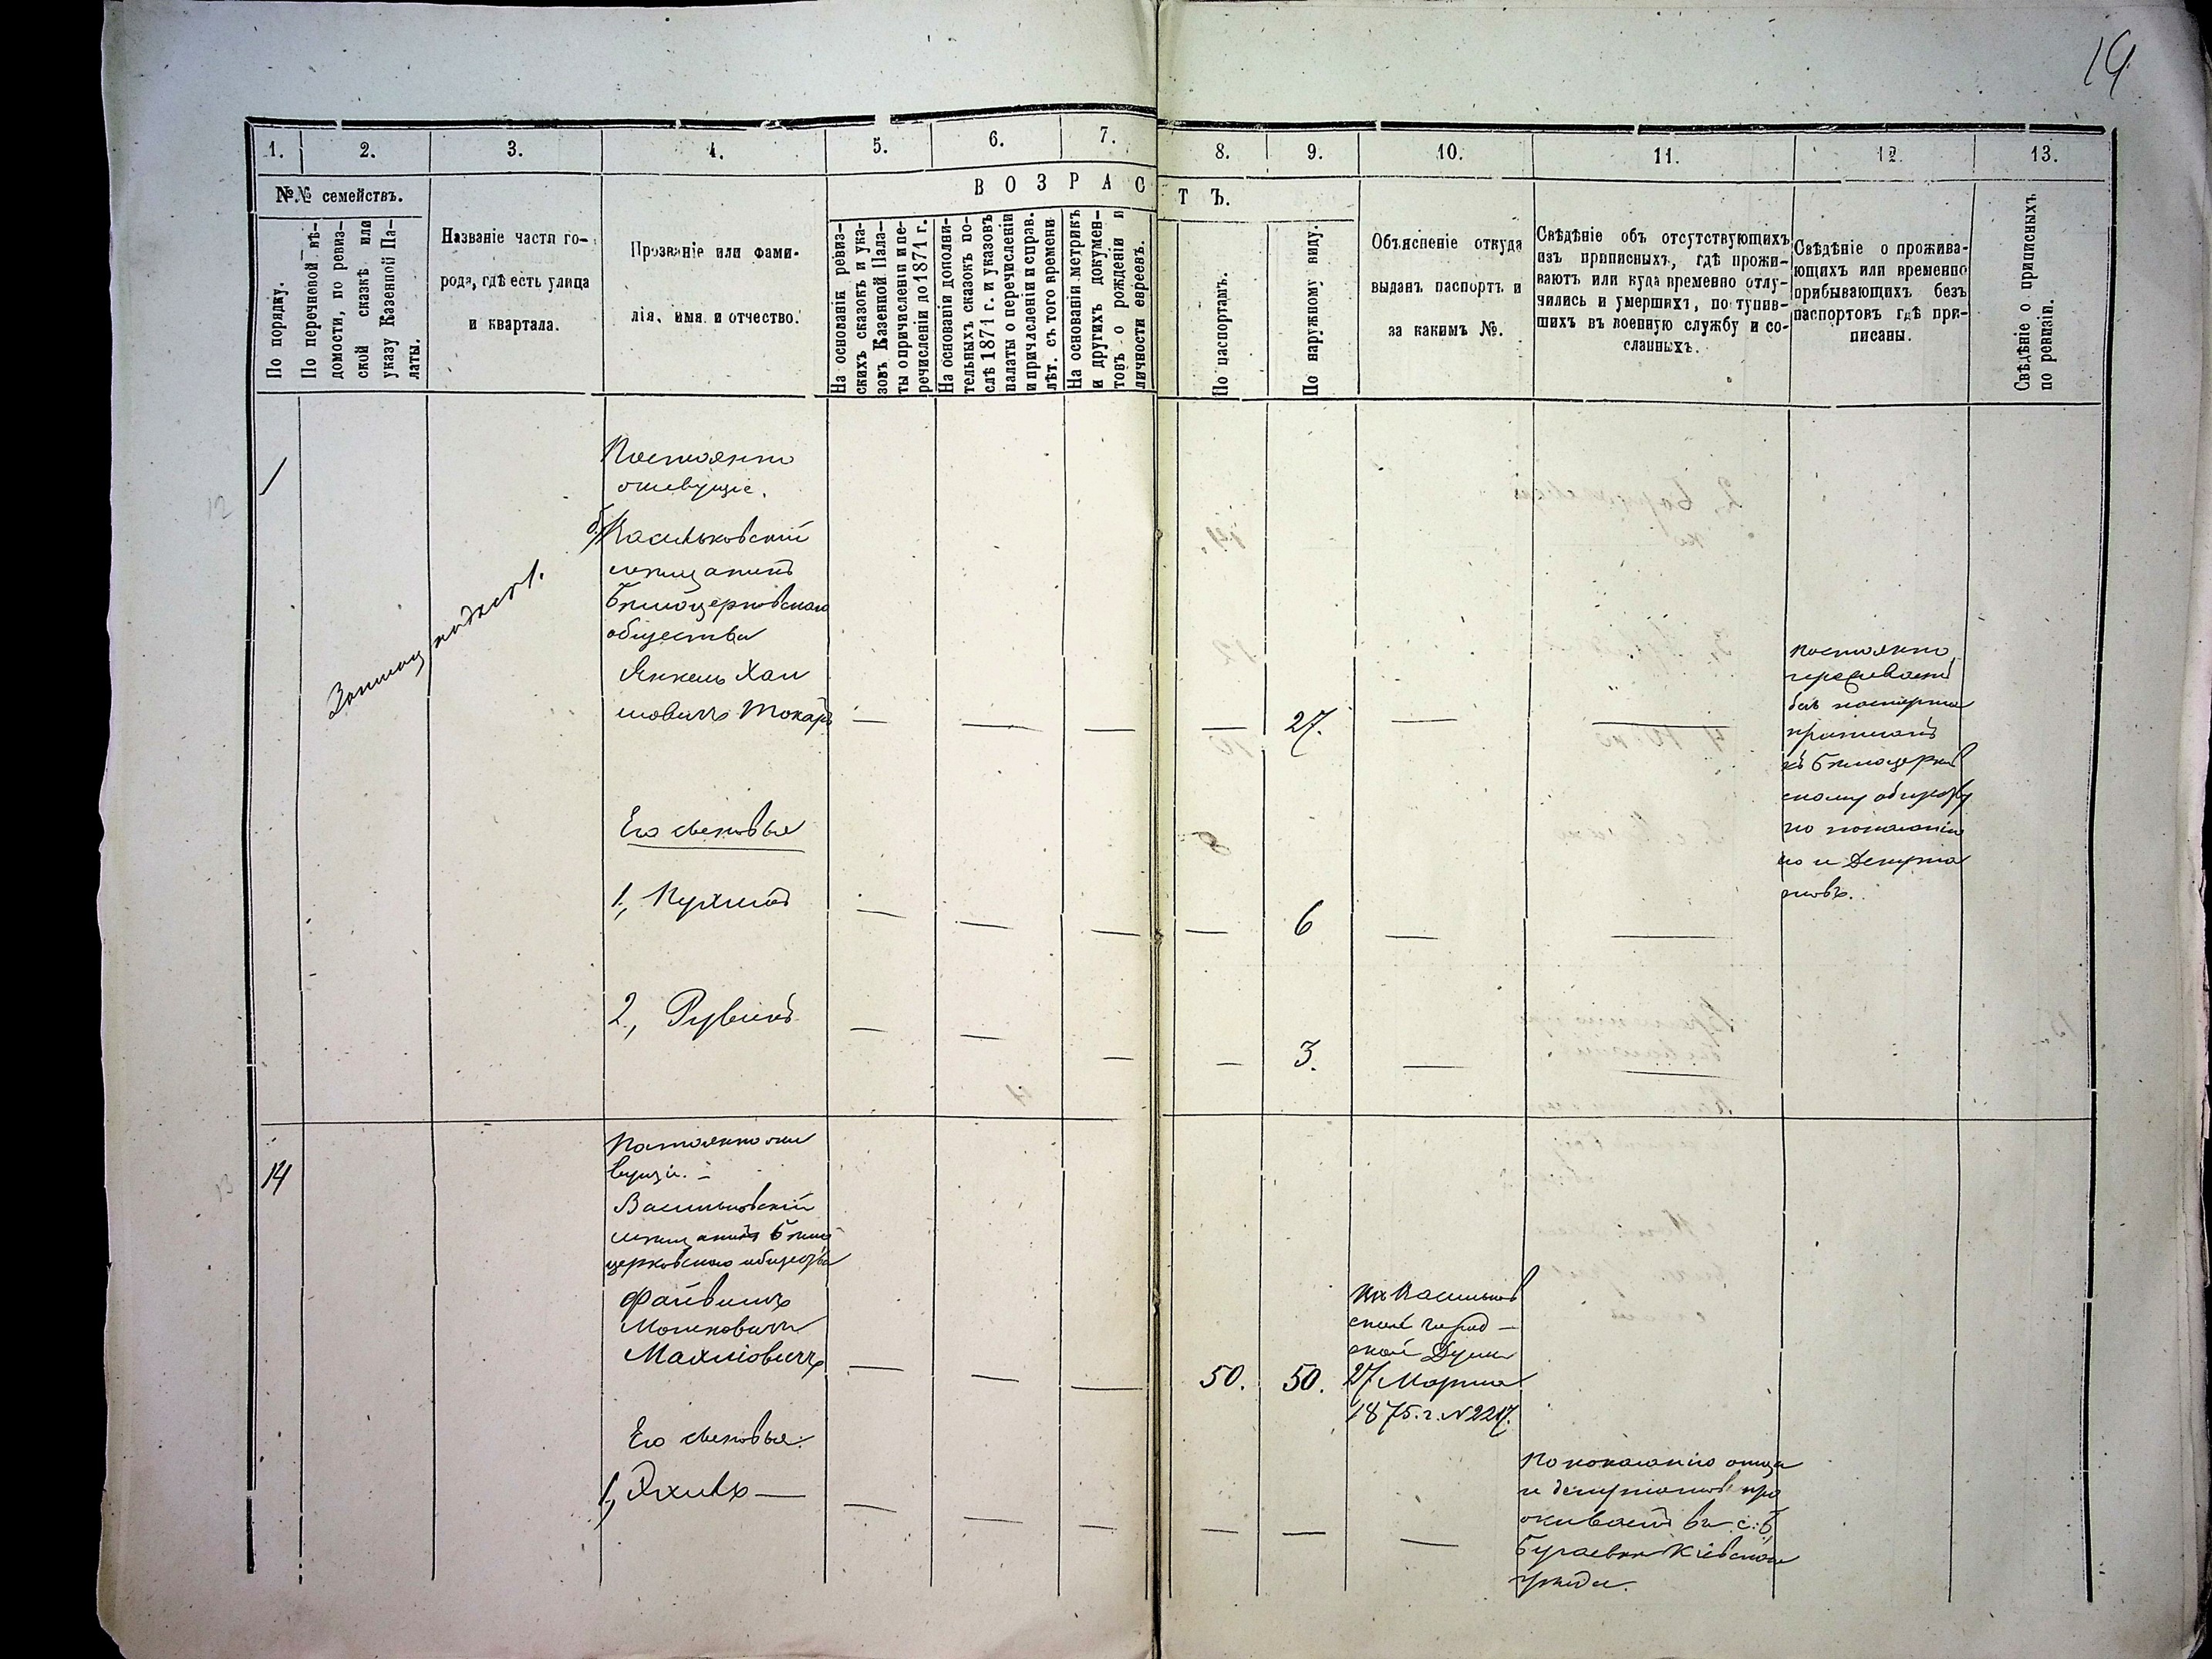 19
1.
2.
3.
4.
5.
6.
7.
8.
9.
10.
11.
12.
13.
№№ семействъ.
ВОЗРАСТЪ.
По порядку.
По перечневой вѣ-
домости, по ревиз-
ской сказкѣ или
указу Казенной Па-
латы.
Названіе части го-
рода, гдѣ есть улица
и квартала.
Прозваніе или фами-
лія, имя и отчество.
На основаніи ревиз-
скихъ сказокъ и ука-
зовъ Казенной Пала-
ты о причисленіи и пе-
речисленіи до 1871 г.
На основаніи дополни-
тельныхъ сказокъ по-
слѣ 1871 г. и указовъ
палаты о перечисленіи
и причисленіи и справ.
лѣт. съ того времени
На основаніи метрикъ
и другихъ докумен-
товъ о рожденіи и
личности евреевъ.
По паспортамъ.
По наружному виду.
Объясненіе откуда
выданъ паспортъ и
за какимъ №.
Свѣдѣніе объ отсутствующихъ
изъ приписныхъ, гдѣ прожи-
ваютъ или куда временно отлу-
чились и умершихъ, поступив-
шихъ въ военную службу и со-
сланныхъ.
Свѣдѣніе о прожива-
ющихъ или временно
прибывающихъ безъ
паспортовъ гдѣ при-
писаны.
Свѣдѣніе о приписныхъ
по ревизіи.
12
Постоянно
живущіе.
Васильковскій
мѣщанинъ
Бѣлоцерковскаго
общества
Янкель Хаи
мовичъ Токарь — — — — 27. — —
Постоянно
проживаетъ
безъ паспорта
приписанъ
къ Бѣлоцерков
скому обществу
по показанію
и Депута
товъ.
Его сыновья
1, — — — — 6 — —
2, Рувинъ — — — — 3. — —
13
14
Постоянно жи
вущіе. —
Васильковскій
мѣщанинъ Бѣло
церковскаго общества
Файвишъ
Мошковичъ
— — — 50. 50.
Изъ Васильков
ской город —
ской Думы
27 Марта
1875. г. № 2217.
Его сыновья:
1, — — — — — — —
По показанію отца
и депутатовъ про
живаетъ въ с:
Кіевскаго
уѣзда.